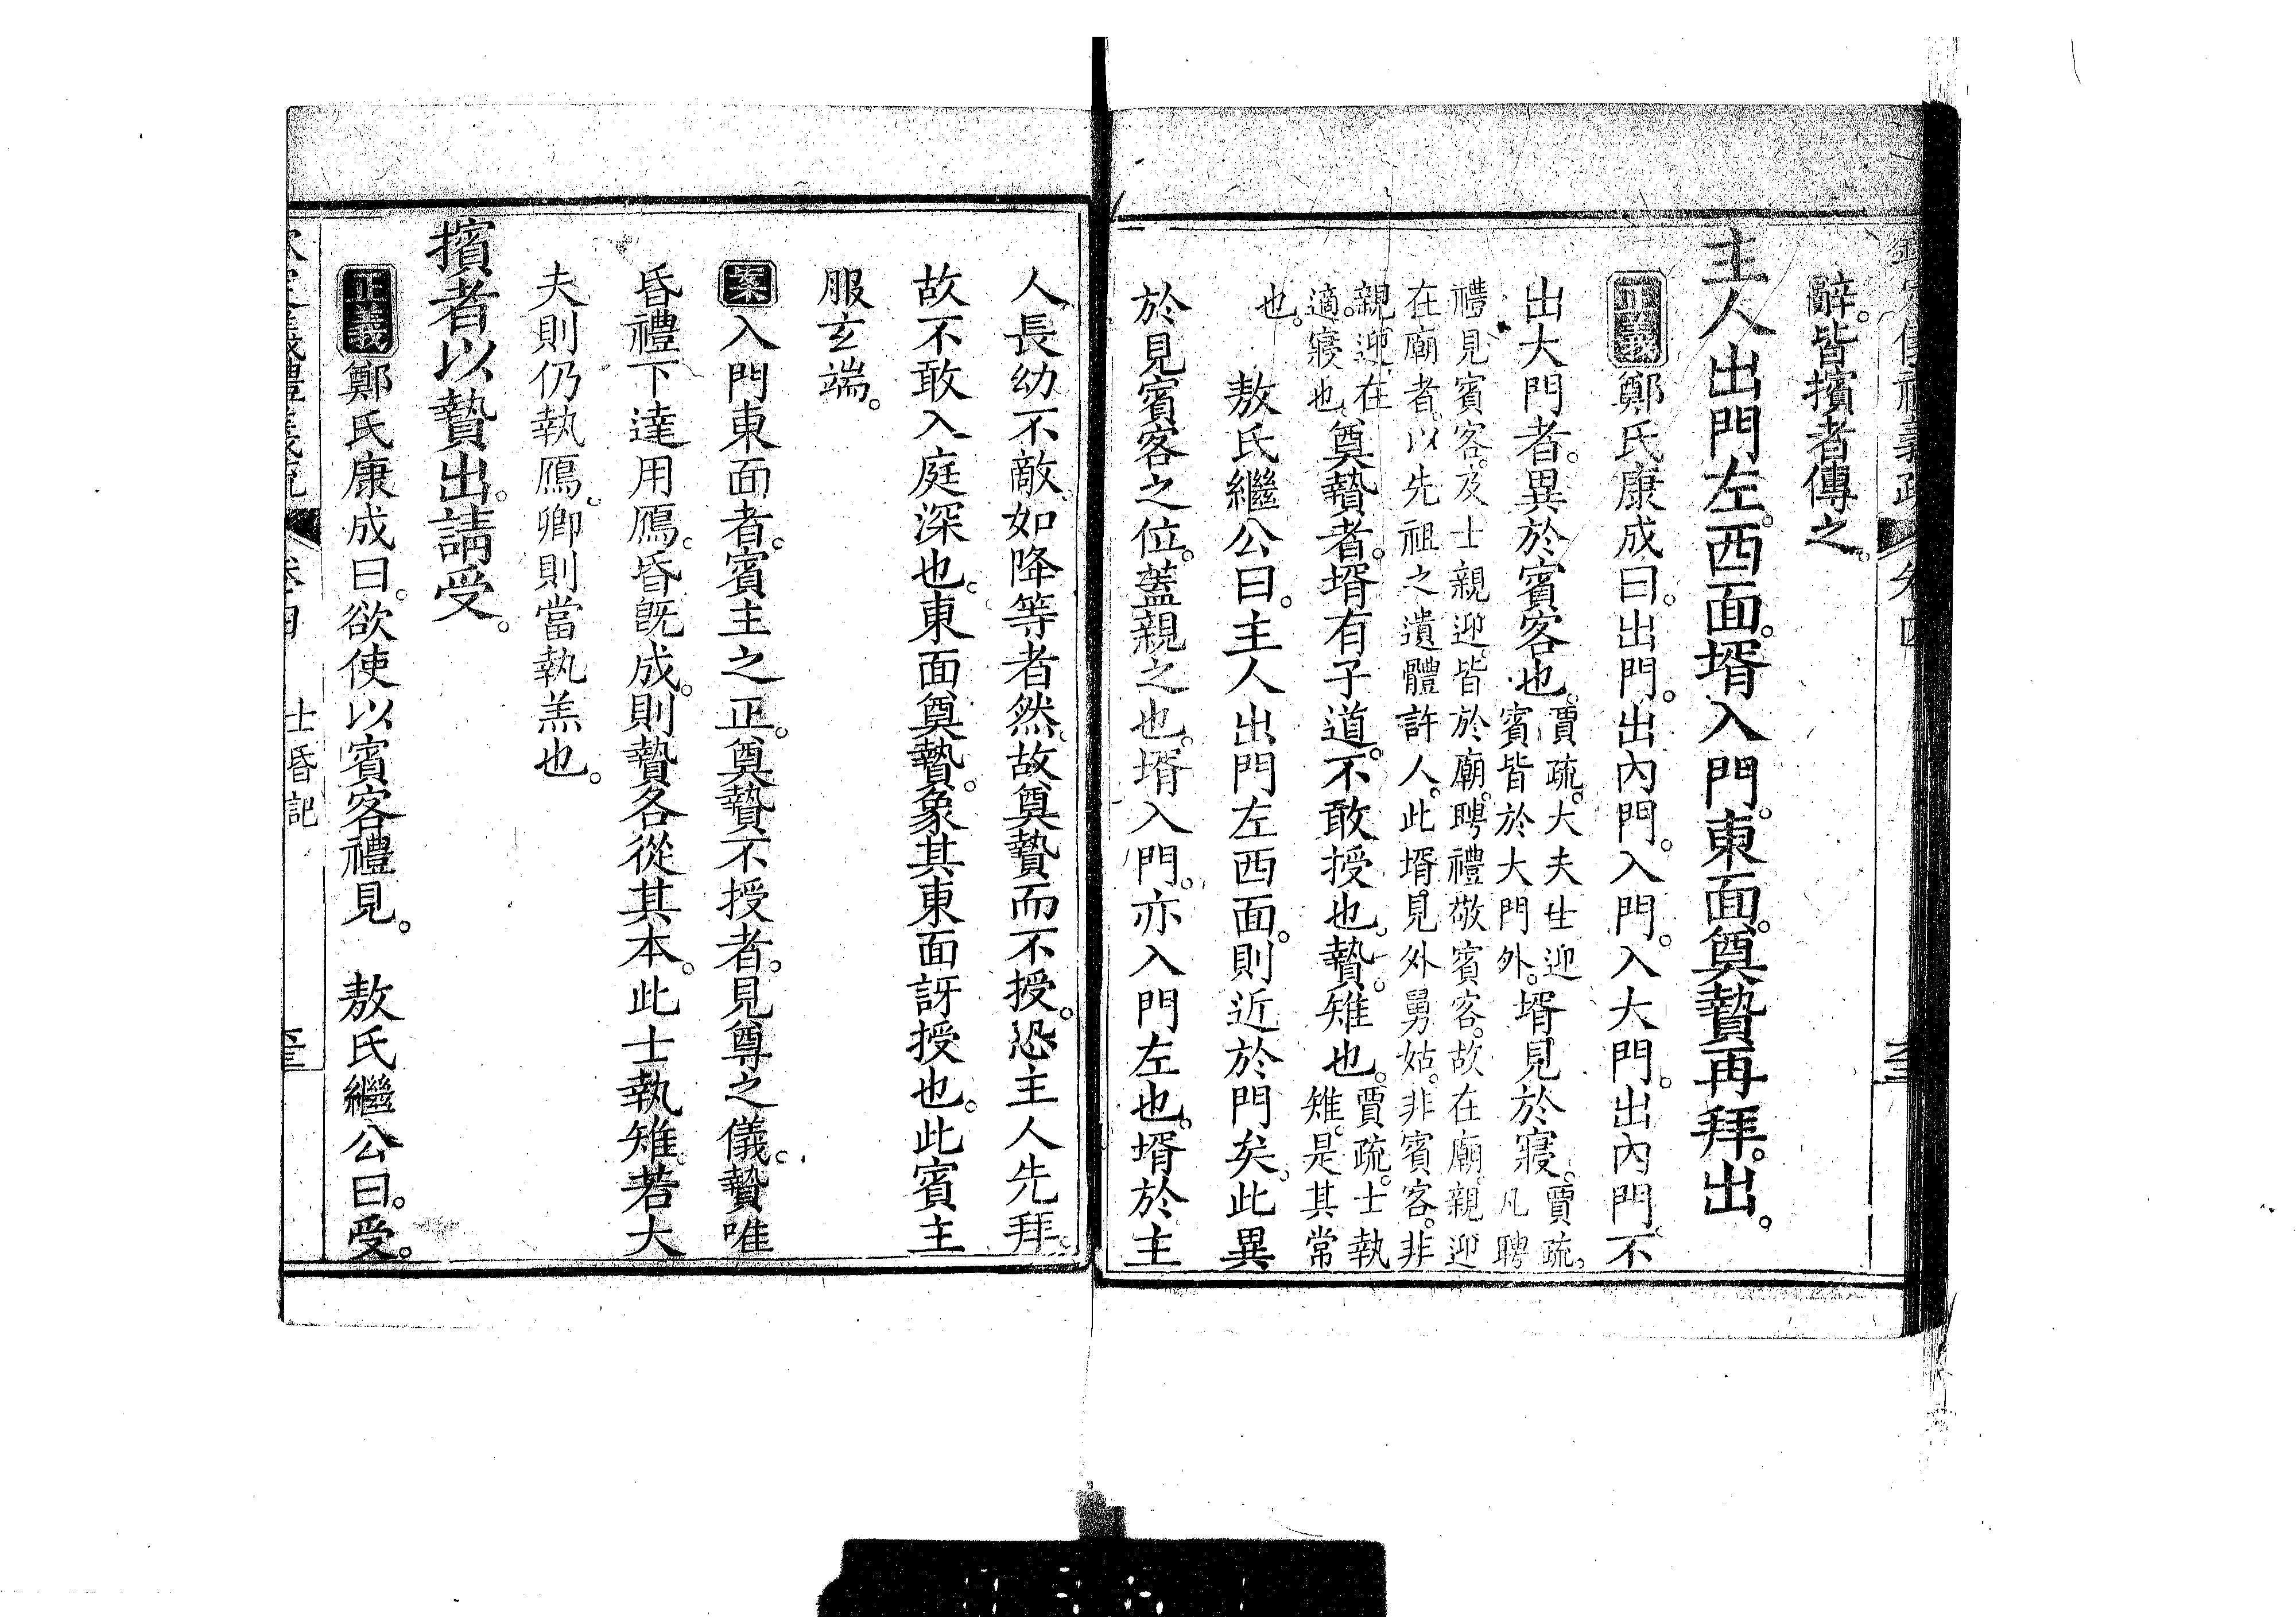 辭。皆擯者傳之。
主人出門左。西面。壻入門。東面。奠贄再拜。出。
正義鄭氏康成曰。出門。出內門。入門。入大門。出內門。不
出大門者。異於賓客也。賈疏。大夫士迎
賓皆於大門外。壻見於寢。賈疏。
凡聘
禮見賓客。及士親迎。皆於廟。聘禮敬賓客。故在廟。親迎
在廟者。以先祖之遺體許人。此壻見外舅姑。非賓客。非
親迎。在
適寢也。奠贄者。壻有子道。不敢授也。贄。雉也。賈疏。士執
雉。是其常
也。
敖氏繼公曰。主人出門左西面。則近於門矣。此異
於見賓客之位。蓋親之也。壻入門。亦入門左也。壻於主
人長幼不敵。如降等者然。故奠贄而不授。恐主人先拜。
故不敢入庭深也。東面奠贄。象其東面訝授也。此賓主
服玄端。
案入門東面者。賓主之正。奠贄不授者。見尊之儀。贄唯
昏禮下達用鴈。昏旣成。則贄各從其本。此士執雉。若大
夫則仍執鴈。卿則當執羔也。
擯者以贄出。請受。
正義鄭氏康成曰。欲使以賓客禮見。 敖氏繼公曰。受。
士昏記